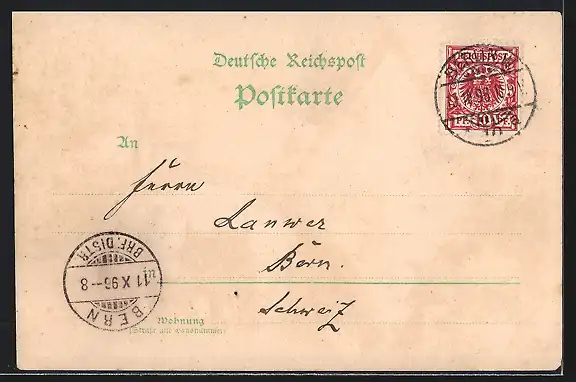 Deutsche Reichspost
Postkarte
REICHSPOST
10
PFENNIG
An
Herrn
Lanwer
Bern.
Schweiz
Wohnung
(Straße und Hausnummer)
BERN
11 X 96–8
BRF. DISTR.